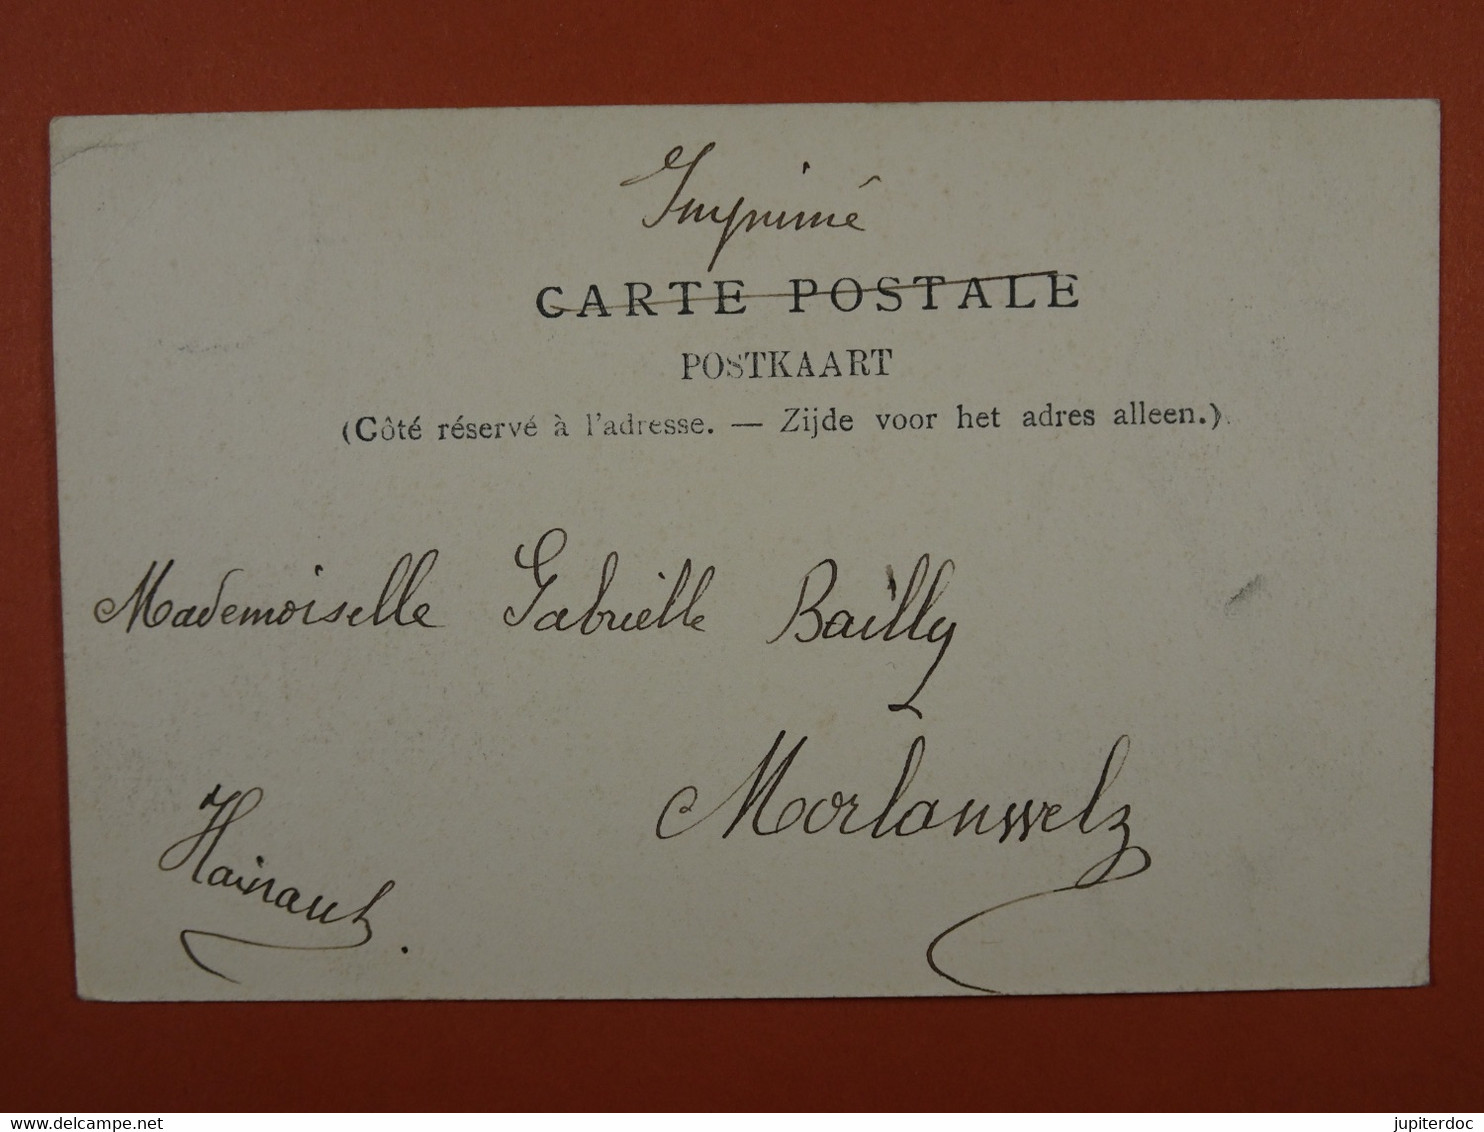 Imprimé
CARTE POSTALE
POSTKAART
(Côté réservé à l'adresse. — Zijde voor het adres alleen.)
Mademoiselle Gabrielle Bailly
Morlanwelz
Hainaut.
delcampe.net
jupiterdoc